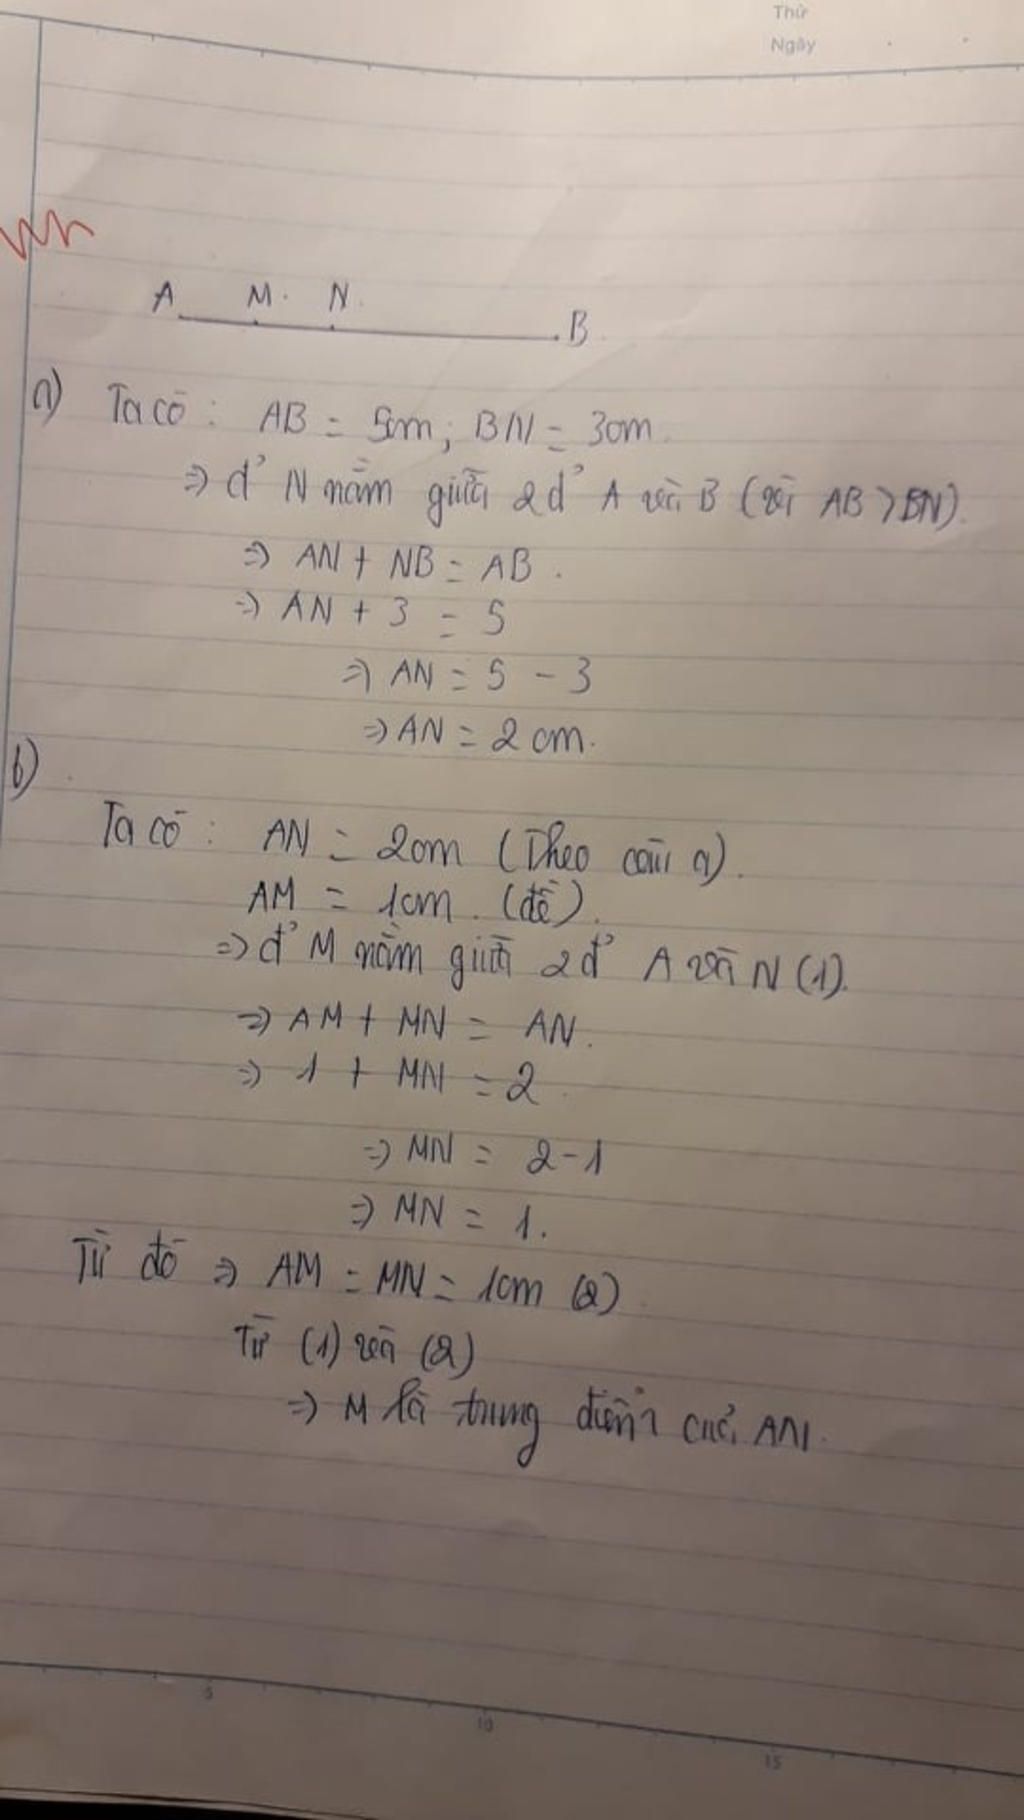 Thứ
Ngày
A M. N.
B.
a) Ta có: AB = 5cm; BN = 3cm.
=> đ' N nằm giữa 2 đ' A và B (vì AB > BN).
=> AN + NB = AB.
=> AN + 3 = 5
=> AN = 5 - 3
=> AN = 2cm.
b)
Ta có: AN = 2cm (Theo câu a).
AM = 1cm. (đề).
=> đ' M nằm giữa 2 đ' A và N (1).
=> AM + MN = AN.
=> 1 + MN = 2
=> MN = 2 - 1
=> MN = 1.
Từ đó => AM = MN = 1cm (2)
Từ (1) và (2)
=> M là trung điểm của AN.
5
10
15